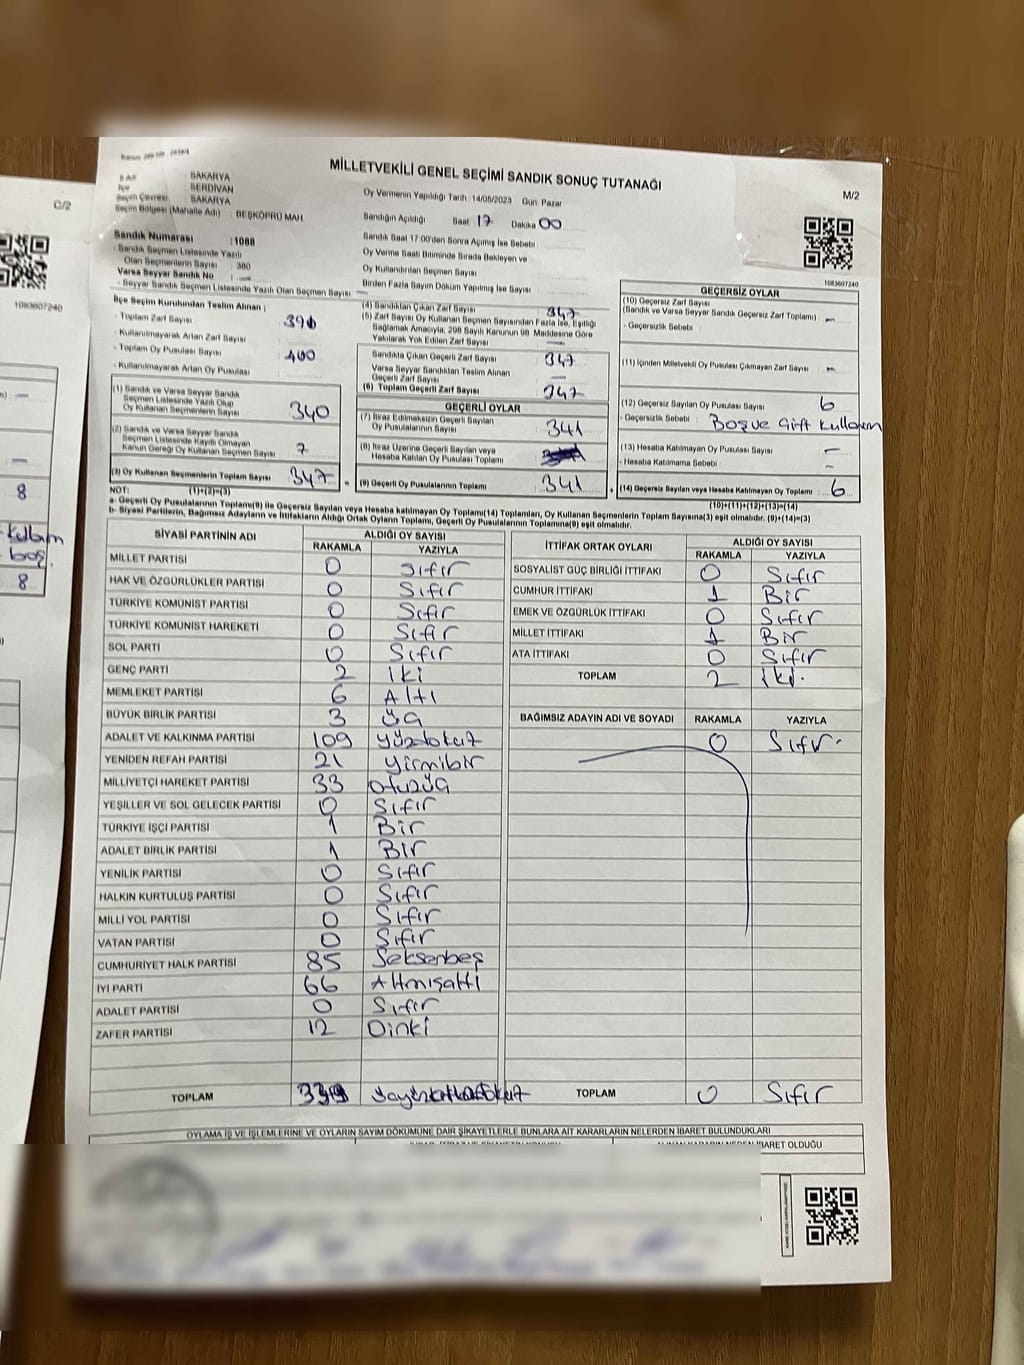 MİLLETVEKİLİ GENEL SEÇİMİ SANDIK SONUÇ TUTANAĞI
M/2
C/2
İlçe
SAKARYA
SERDİVAN
Seçim Çevresi SAKARYA
Seçim Bölgesi (Mahalle Adı) : BEŞKÖPRÜ MAH.
Oy Vermenin Yapıldığı Tarih : 14/05/2023 Gün: Pazar
Sandığın Açıldığı Saat 17 Dakika 00
Sandık Saat 17:00'den Sonra Açılmış İse Sebebi
Oy Verme Saati Bitiminde Sırada Bekleyen ve
Oy Kullandırılan Seçmen Sayısı
Birden Fazla Sayım Döküm Yapılmış İse Sayısı
Sandık Numarası : 1088
- Sandık Seçmen Listesinde Yazılı
Olan Seçmenlerin Sayısı : 380
Varsa Seyyar Sandık No : —
- Seyyar Sandık Seçmen Listesinde Yazılı Olan Seçmen Sayısı —
1083607240
1083607240
İlçe Seçim Kurulundan Teslim Alınan :
- Toplam Zarf Sayısı
- Kullanılmayarak Artan Zarf Sayısı
- Toplam Oy Pusulası Sayısı 400
- Kullanılmayarak Artan Oy Pusulası
(1) Sandık ve Varsa Seyyar Sandık
Seçmen Listesinde Yazılı Olup
Oy Kullanan Seçmenlerin Sayısı 340
(2) Sandık ve Varsa Seyyar Sandık
Seçmen Listesinde Kayıtlı Olmayan
Kanun Gereği Oy Kullanan Seçmen Sayısı 7
(3) Oy Kullanan Seçmenlerin Toplam Sayısı 347
(4) Sandıktan Çıkan Zarf Sayısı 347
(5) Zarf Sayısı Oy Kullanan Seçmen Sayısından Fazla İse, Eşitliği
Sağlamak Amacıyla, 298 Sayılı Kanunun 98. Maddesine Göre
Yakılarak Yok Edilen Zarf Sayısı —
Sandıkta Çıkan Geçerli Zarf Sayısı 347
Varsa Seyyar Sandıktan Teslim Alınan
Geçerli Zarf Sayısı —
(6) Toplam Geçerli Zarf Sayısı 347
GEÇERLİ OYLAR
(7) İtiraz Edilmeksizin Geçerli Sayılan
Oy Pusulalarının Sayısı 341
(8) İtiraz Üzerine Geçerli Sayılan veya
Hesaba Katılan Oy Pusulası Toplamı
(9) Geçerli Oy Pusulalarının Toplamı 341
GEÇERSİZ OYLAR
(10) Geçersiz Zarf Sayısı
(Sandık ve Varsa Seyyar Sandık Geçersiz Zarf Toplamı) —
- Geçersizlik Sebebi
(11) İçinden Milletvekili Oy Pusulası Çıkmayan Zarf Sayısı —
(12) Geçersiz Sayılan Oy Pusulası Sayısı 6
- Geçersizlik Sebebi : Boş ve Çift Kullanım
(13) Hesaba Katılmayan Oy Pusulası Sayısı —
- Hesaba Katılmama Sebebi —
(14) Geçersiz Sayılan veya Hesaba Katılmayan Oy Toplamı 6
NOT: (1)+(2)=(3)
(10)+(11)+(12)+(13)=(14)
a- Geçerli Oy Pusulalarının Toplamı(9) ile Geçersiz Sayılan veya Hesaba katılmayan Oy Toplamı(14) Toplamları, Oy Kullanan Seçmenlerin Toplam Sayısına(3) eşit olmalıdır. (9)+(14)=(3)
b- Siyasi Partilerin, Bağımsız Adayların ve İttifakların Aldığı Ortak Oyların Toplamı, Geçerli Oy Pusulalarının Toplamına(9) eşit olmalıdır.
SİYASİ PARTİNİN ADI ALDIĞI OY SAYISI
RAKAMLA YAZIYLA
MİLLET PARTİSİ 0 Sıfır
HAK VE ÖZGÜRLÜKLER PARTİSİ 0 Sıfır
TÜRKİYE KOMÜNİST PARTİSİ 0 Sıfır
TÜRKİYE KOMÜNİST HAREKETİ 0 Sıfır
SOL PARTİ 0 Sıfır
GENÇ PARTİ 2 İki
MEMLEKET PARTİSİ 6 Altı
BÜYÜK BİRLİK PARTİSİ 3 Üç
ADALET VE KALKINMA PARTİSİ 109 Yüzdokuz
YENİDEN REFAH PARTİSİ 21 Yirmibir
MİLLİYETÇİ HAREKET PARTİSİ 33 Otuzüç
YEŞİLLER VE SOL GELECEK PARTİSİ 0 Sıfır
TÜRKİYE İŞÇİ PARTİSİ 1 Bir
ADALET BİRLİK PARTİSİ 1 Bir
YENİLİK PARTİSİ 0 Sıfır
HALKIN KURTULUŞ PARTİSİ 0 Sıfır
MİLLİ YOL PARTİSİ 0 Sıfır
VATAN PARTİSİ 0 Sıfır
CUMHURİYET HALK PARTİSİ 85 Seksenbeş
İYİ PARTİ 66 Altmışaltı
ADALET PARTİSİ 0 Sıfır
ZAFER PARTİSİ 12 Oniki
TOPLAM 339
İTTİFAK ORTAK OYLARI ALDIĞI OY SAYISI
RAKAMLA YAZIYLA
SOSYALİST GÜÇ BİRLİĞİ İTTİFAKI 0 Sıfır
CUMHUR İTTİFAKI 1 Bir
EMEK VE ÖZGÜRLÜK İTTİFAKI 0 Sıfır
MİLLET İTTİFAKI 1 Bir
ATA İTTİFAKI 0 Sıfır
TOPLAM 2 İki.
BAĞIMSIZ ADAYIN ADI VE SOYADI RAKAMLA YAZIYLA
0 Sıfır.
TOPLAM 0 Sıfır
OYLAMA İŞ VE İŞLEMLERİNE VE OYLARIN SAYIM DÖKÜMÜNE DAİR ŞİKAYETLERLE BUNLARA AİT KARARLARIN NELERDEN İBARET BULUNDUKLARI
İBARET OLDUĞU
8
Kullanım
boş.
8